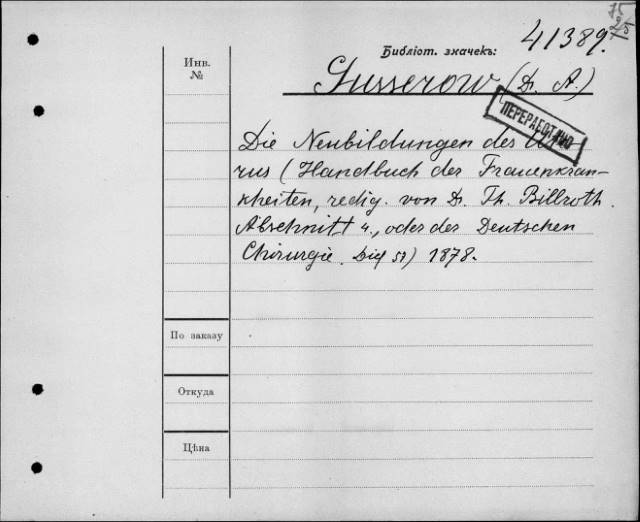 41389.
Библіот. значекъ:
Инв.
№
Gusserow (Dr. A.)
ПЕРЕРАБОТАНО
Die Neubildungen des Ute-
rus (Handbuch der Frauenkran-
kheiten, redig. von Dr. Th. Billroth.
Abschnitt 4., oder der Deutschen
Chirurgie. 57) 1878.
По заказу
Откуда
Цѣна